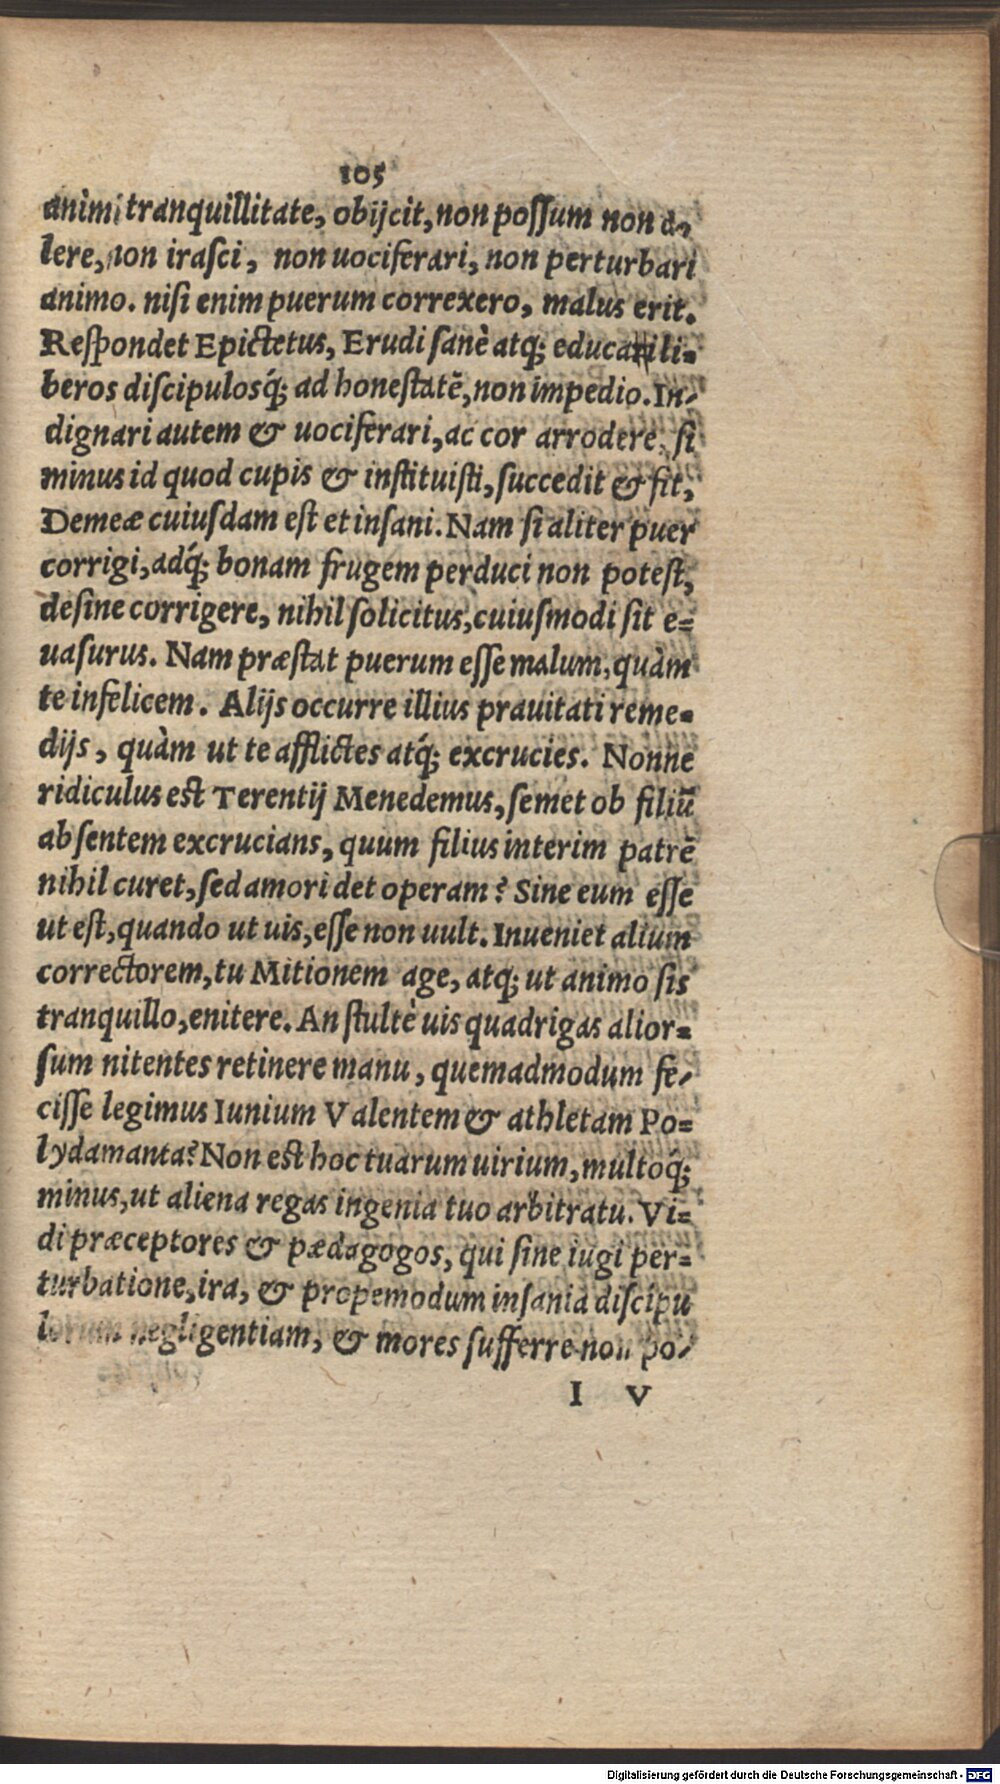 105
animi tranquillitate, obijcit, non possum non do,
lere, non irasci, non uociferari, non perturbari
animo. nisi enim puerum correxero, malus erit.
Respondet Epictetus, Erudi sanè atq; educa li=
beros discipulosq́; ad honestatē, non impedio. In,
dignari autem & uociferari, ac cor arrodere, si
minus id quod cupis & instituisti, succedit & fit,
Demeæ cuiusdam est et insani. Nam si aliter puer
corrigi, adq́; bonam frugem perduci non potest,
desine corrigere, nihil solicitus, cuiusmodi sit e=
uasurus. Nam præstat puerum esse malum, quàm
te infelicem. Alijs occurre illius prauitati reme=
dijs, quàm ut te afflictes atq́; excrucies. Nonne
ridiculus est Terentij Menedemus, semet ob filiū
absentem excrucians, quum filius interim patrē
nihil curet, sed amori det operam? Sine eum esse
ut est, quando ut uis, esse non uult. Inueniet alium
correctorem, tu Mitionem age, atq; ut animo sis
tranquillo, enitere. An stultè uis quadrigas alior=
sum nitentes retinere manu, quemadmodum fe,
cisse legimus Iunium Valentem & athletam Po=
lydamanta? Non est hoc tuarum uirium, multoq́;
minus, ut aliena regas ingenia tuo arbitratu. Vi=
di præceptores & pædagogos, qui sine iugi per=
turbatione, ira, & propemodum insania discipu
lorum negligentiam, & mores sufferre non po,
I V
Digitalisierung gefördert durch die Deutsche Forschungsgemeinschaft - DFG